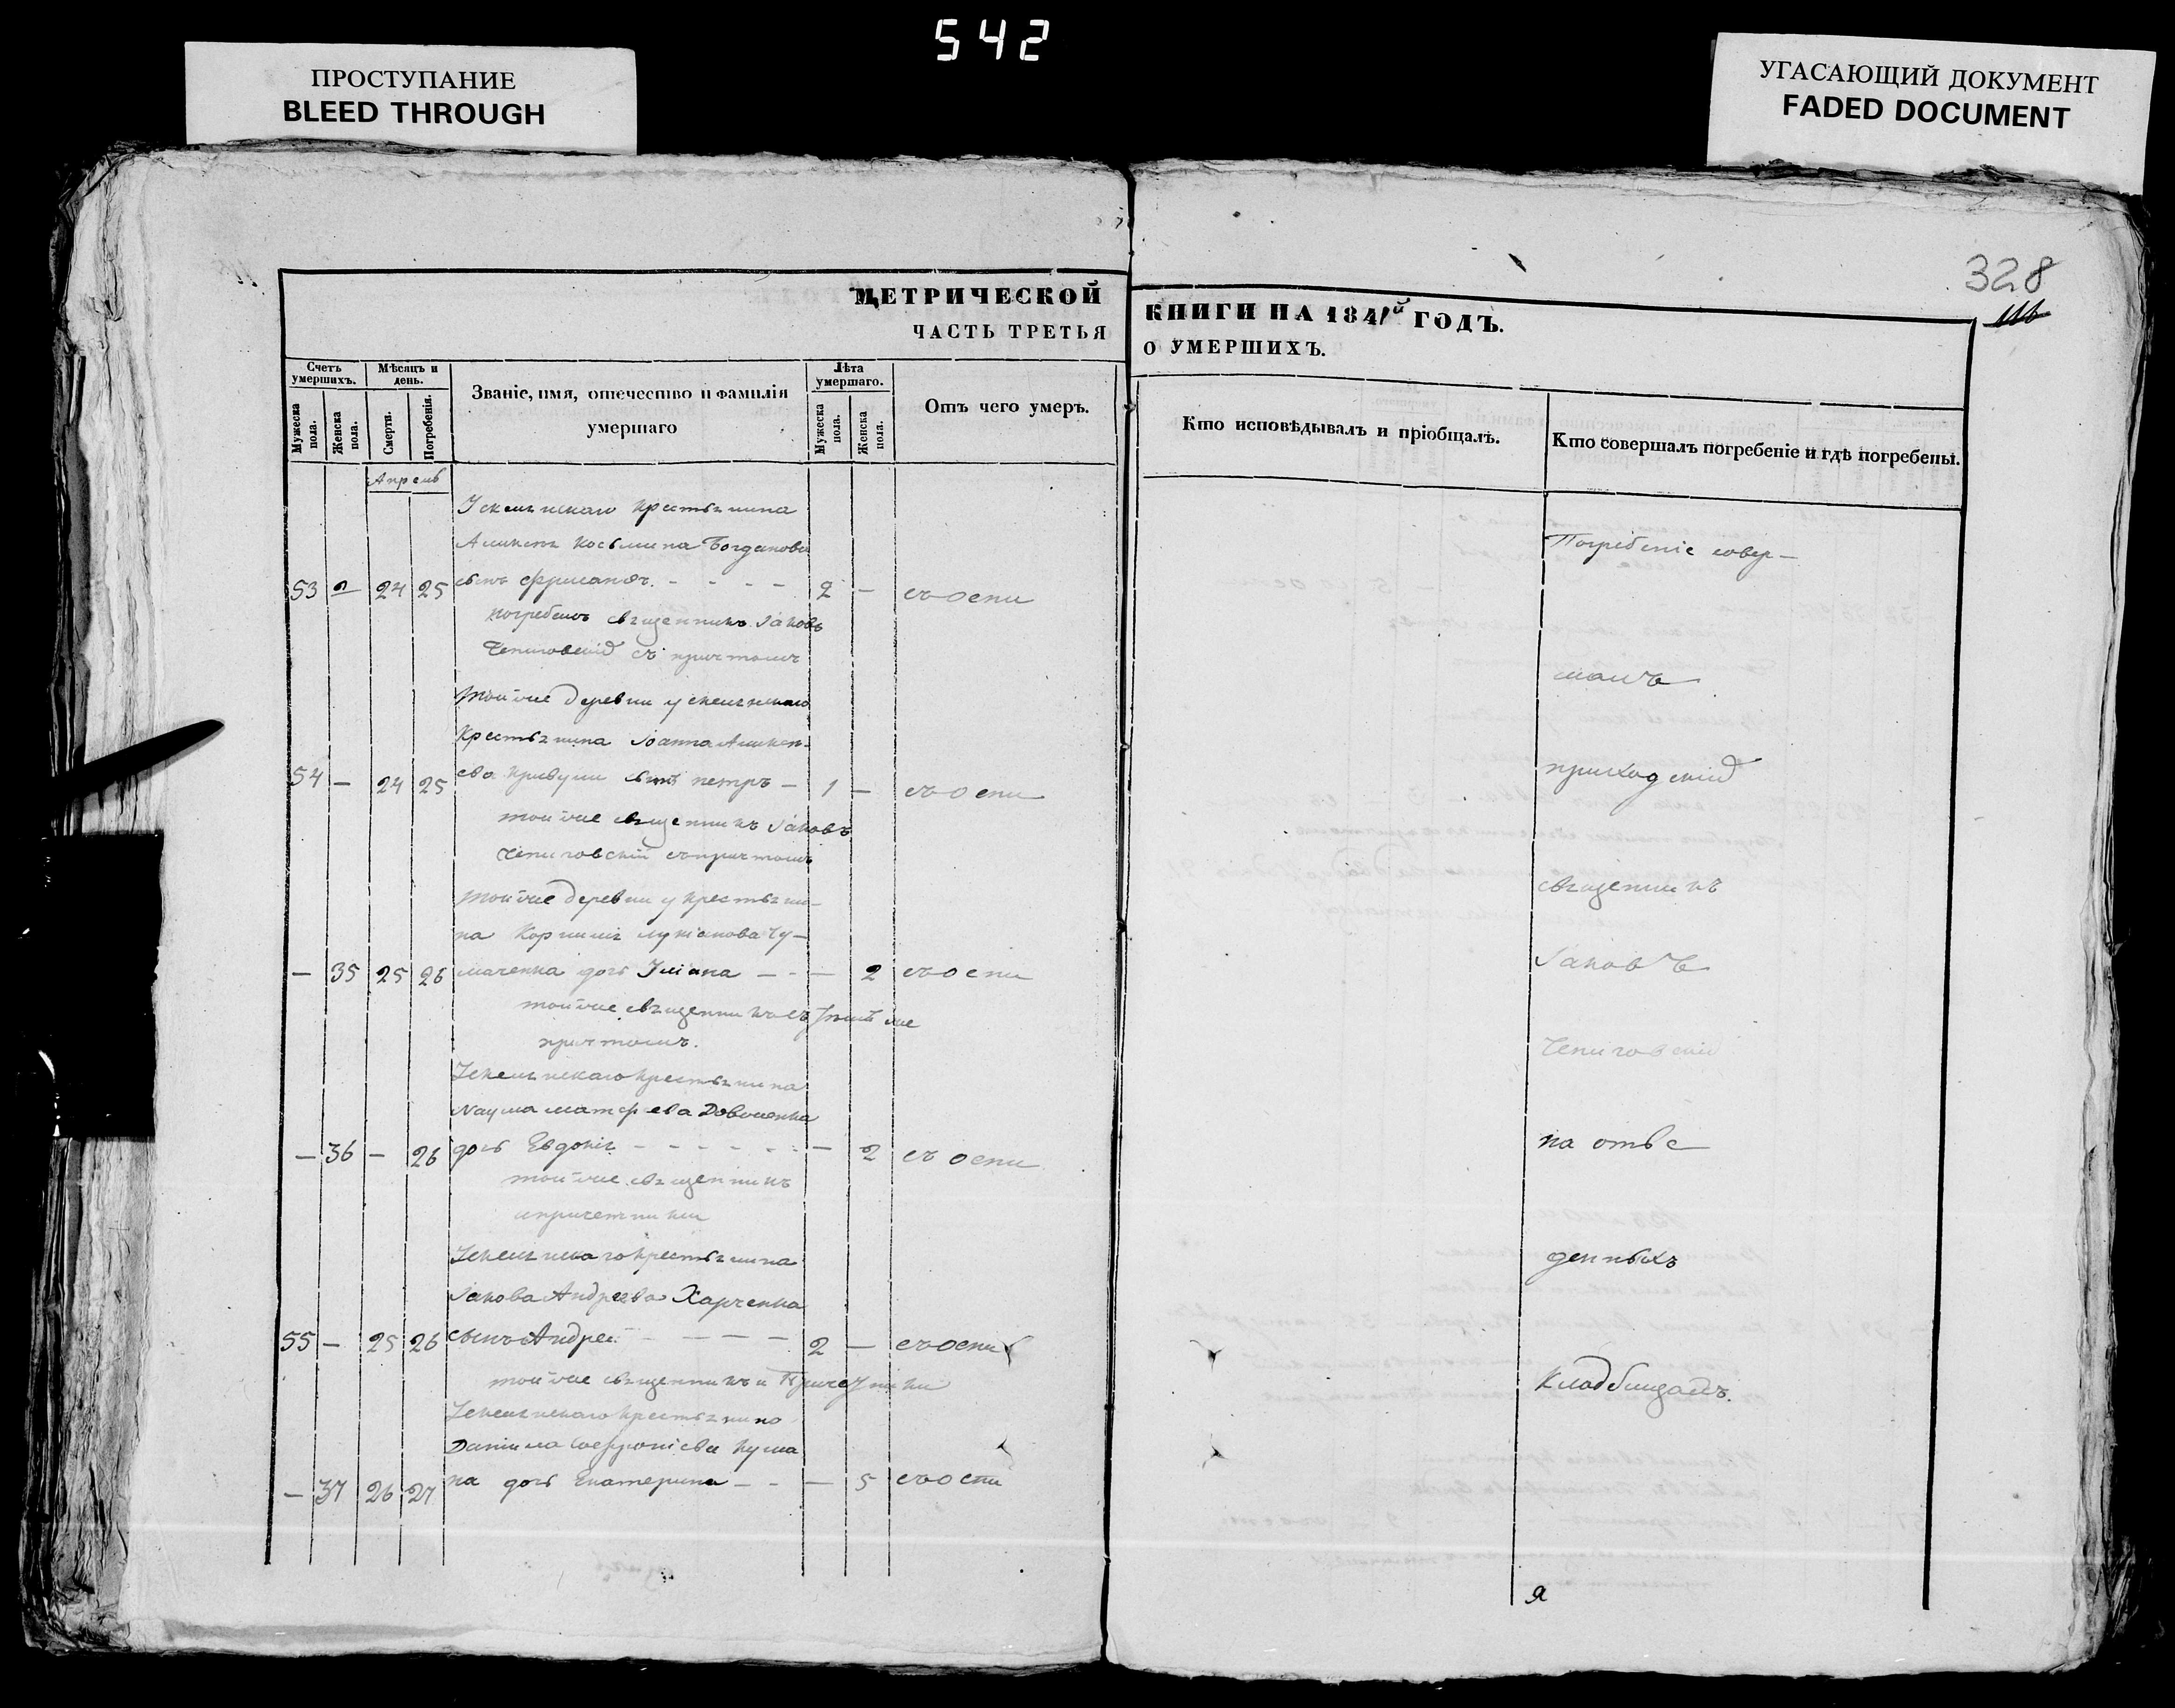 542
ПРОСТУПАНИЕ
BLEED THROUGH
УГАСАЮЩИЙ ДОКУМЕНТ
FADED DOCUMENT
328
МЕТРИЧЕСКОЙ
ЧАСТЬ ТРЕТЬЯ
КНИГИ НА 1841й ГОДЪ.
О УМЕРШИХЪ.
Счетъ умершихъ.
Мѣсяцъ и день.
Званіе, имя, отечество и фамилія умершаго
Лѣта умершаго.
Отъ чего умеръ.
Мужеска пола.
Женска пола.
Смерти.
Погребенія.
Мужеска пола.
Женска пола.
Кто исповѣдывалъ и пріобщалъ.
Кто совершалъ погребеніе и гдѣ погребены.
Апрель
крестьянина
Косьмина Богданова
53 24 25 сынъ 2 — съ оспи
погребенъ священникъ Іаковъ
Чепиговскій съ причтомъ
тойже деревни
Крестьянина Іоанна
54 — 24 25 сынъ петръ — 1 — съ оспи
тойже священникъ Іаковъ
Чепиговскій съ причтомъ
тойже деревни крестьяни-
на Корнилія Лукіанова Чу-
— 35 25 26 маченка дочь Іліана — — 2 съ оспи
тойже священникъ съ
причтомъ.
крестьянина
Наума Матфева
— 36 — 26 дочь Евдокія — 2 съ оспи
тойже священникъ
и причетники
крестьянина
Іакова Андреева Харченка
55 — 25 26 сынъ Андрей 2 — съ оспи
тойже священникъ и Причетники
крестьянина
Даніила Софроніева Кума
— 37 26 27 на дочь Екатерина — — 5 съ оспи
Погребеніе совер-
шалъ
приходскій
священникъ
Іаковъ
Чепиговскій
на отве
денныхъ
Кладбищахъ.
я